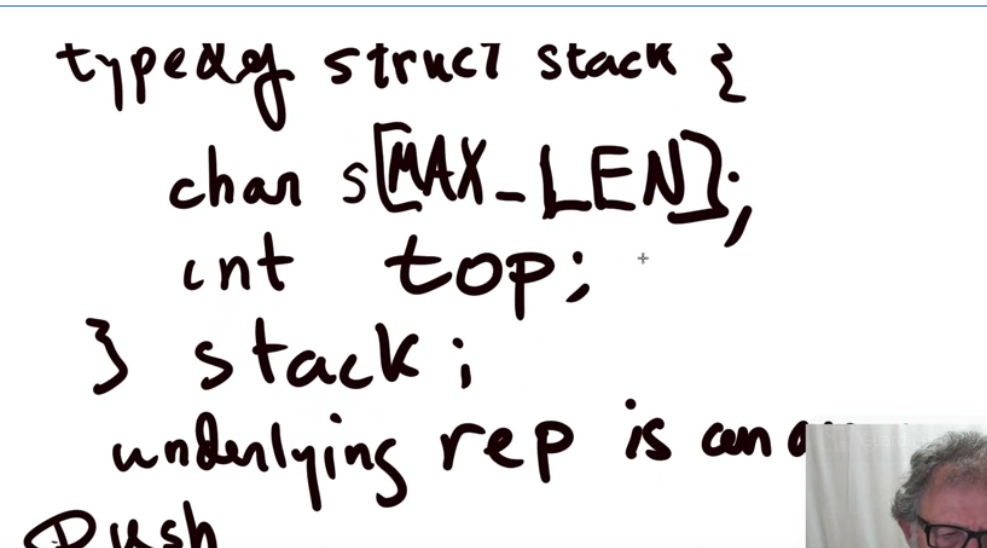 typedef struct stack {
char s[MAX_LEN];
int top;
} stack;
underlying rep is an
Push